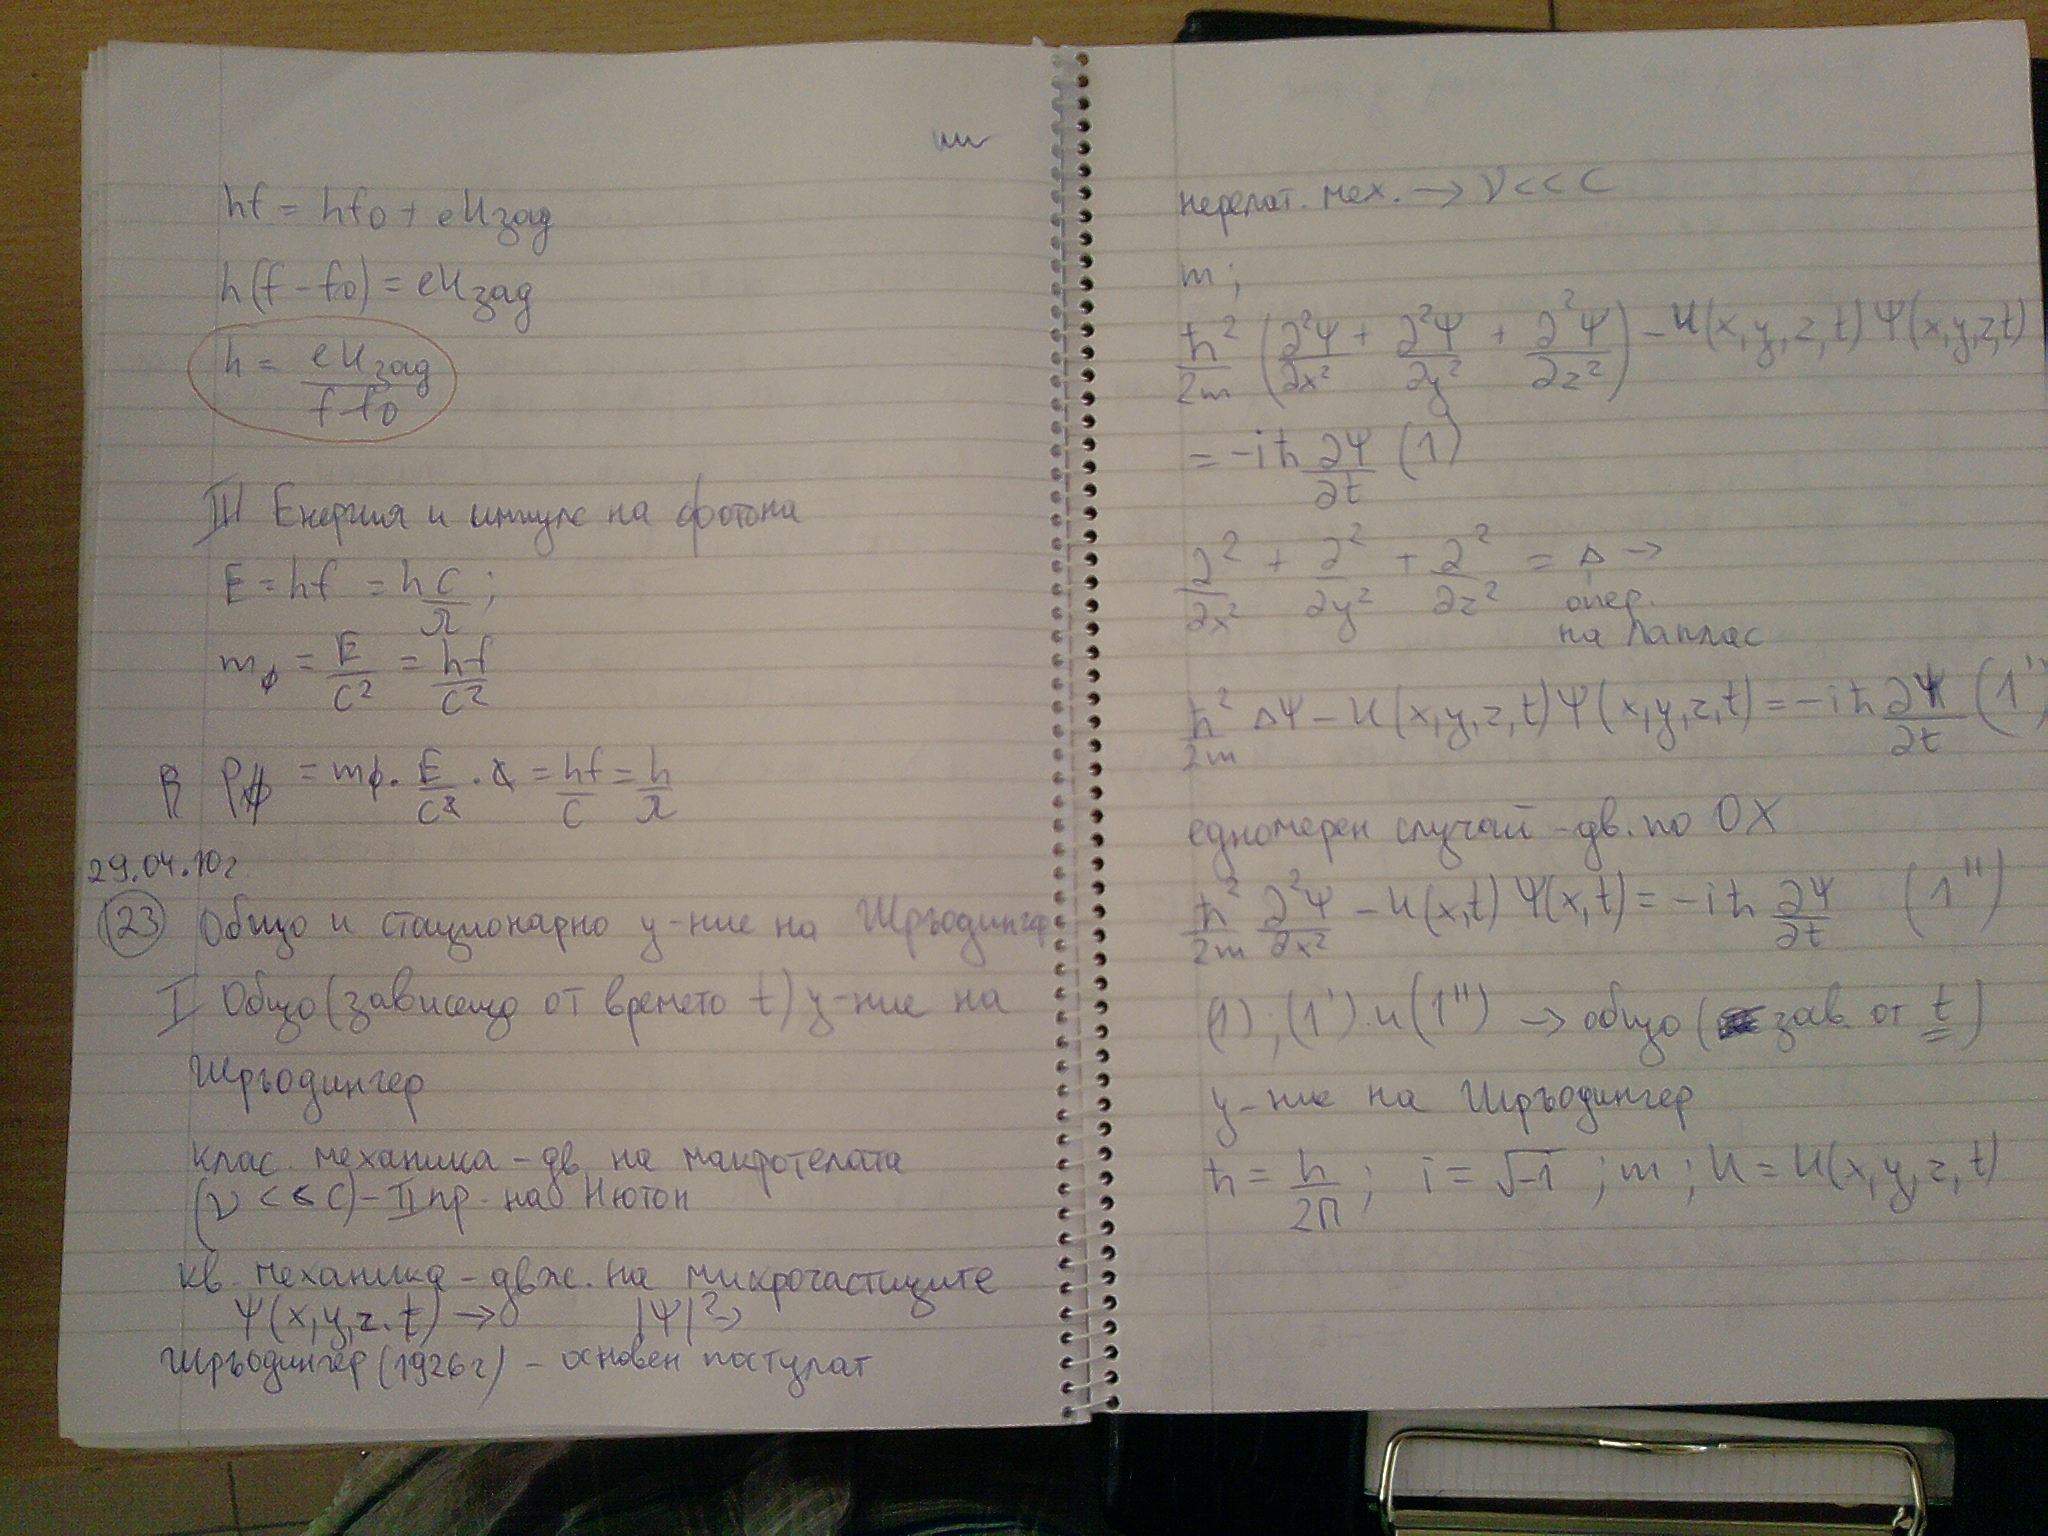 hf = hf₀ + eUзад
h(f - f₀) = eUзад
h = eUзад / (f - f₀)
III Енергия и импулс на фотона
E = hf = h c/λ ;
mφ = E/c² = hf/c²
pφ = mφ . E/c² . c = hf/c = h/λ
29.04.10г.
(23) Общо и стационарно у-ние на Шрьодингер
I Общо (зависещо от времето t) у-ние на
Шрьодингер
клас. механика - дв. на макротелата
(v << c) - II пр. на Нютон
кв. механика - движ. на микрочастиците
Ψ(x,y,z,t) → |Ψ|² →
Шрьодингер (1926г) - основен постулат
нерелат. мех. → v << c
m ;
ħ²/2m (∂²Ψ/∂x² + ∂²Ψ/∂y² + ∂²Ψ/∂z²) - U(x,y,z,t) Ψ(x,y,z,t)
= -iħ ∂Ψ/∂t (1)
∂²/∂x² + ∂²/∂y² + ∂²/∂z² = Δ →
опер.
на Лаплас
ħ²/2m ΔΨ - U(x,y,z,t) Ψ(x,y,z,t) = -iħ ∂Ψ/∂t (1')
едномерен случай - дв. по OX
ħ²/2m ∂²Ψ/∂x² - U(x,t) Ψ(x,t) = -iħ ∂Ψ/∂t (1'')
(1) ; (1') и (1'') → общо (зав. от t)
у-ние на Шрьодингер
ħ = h/2π ; i = √-1 ; m ; U = U(x,y,z,t)